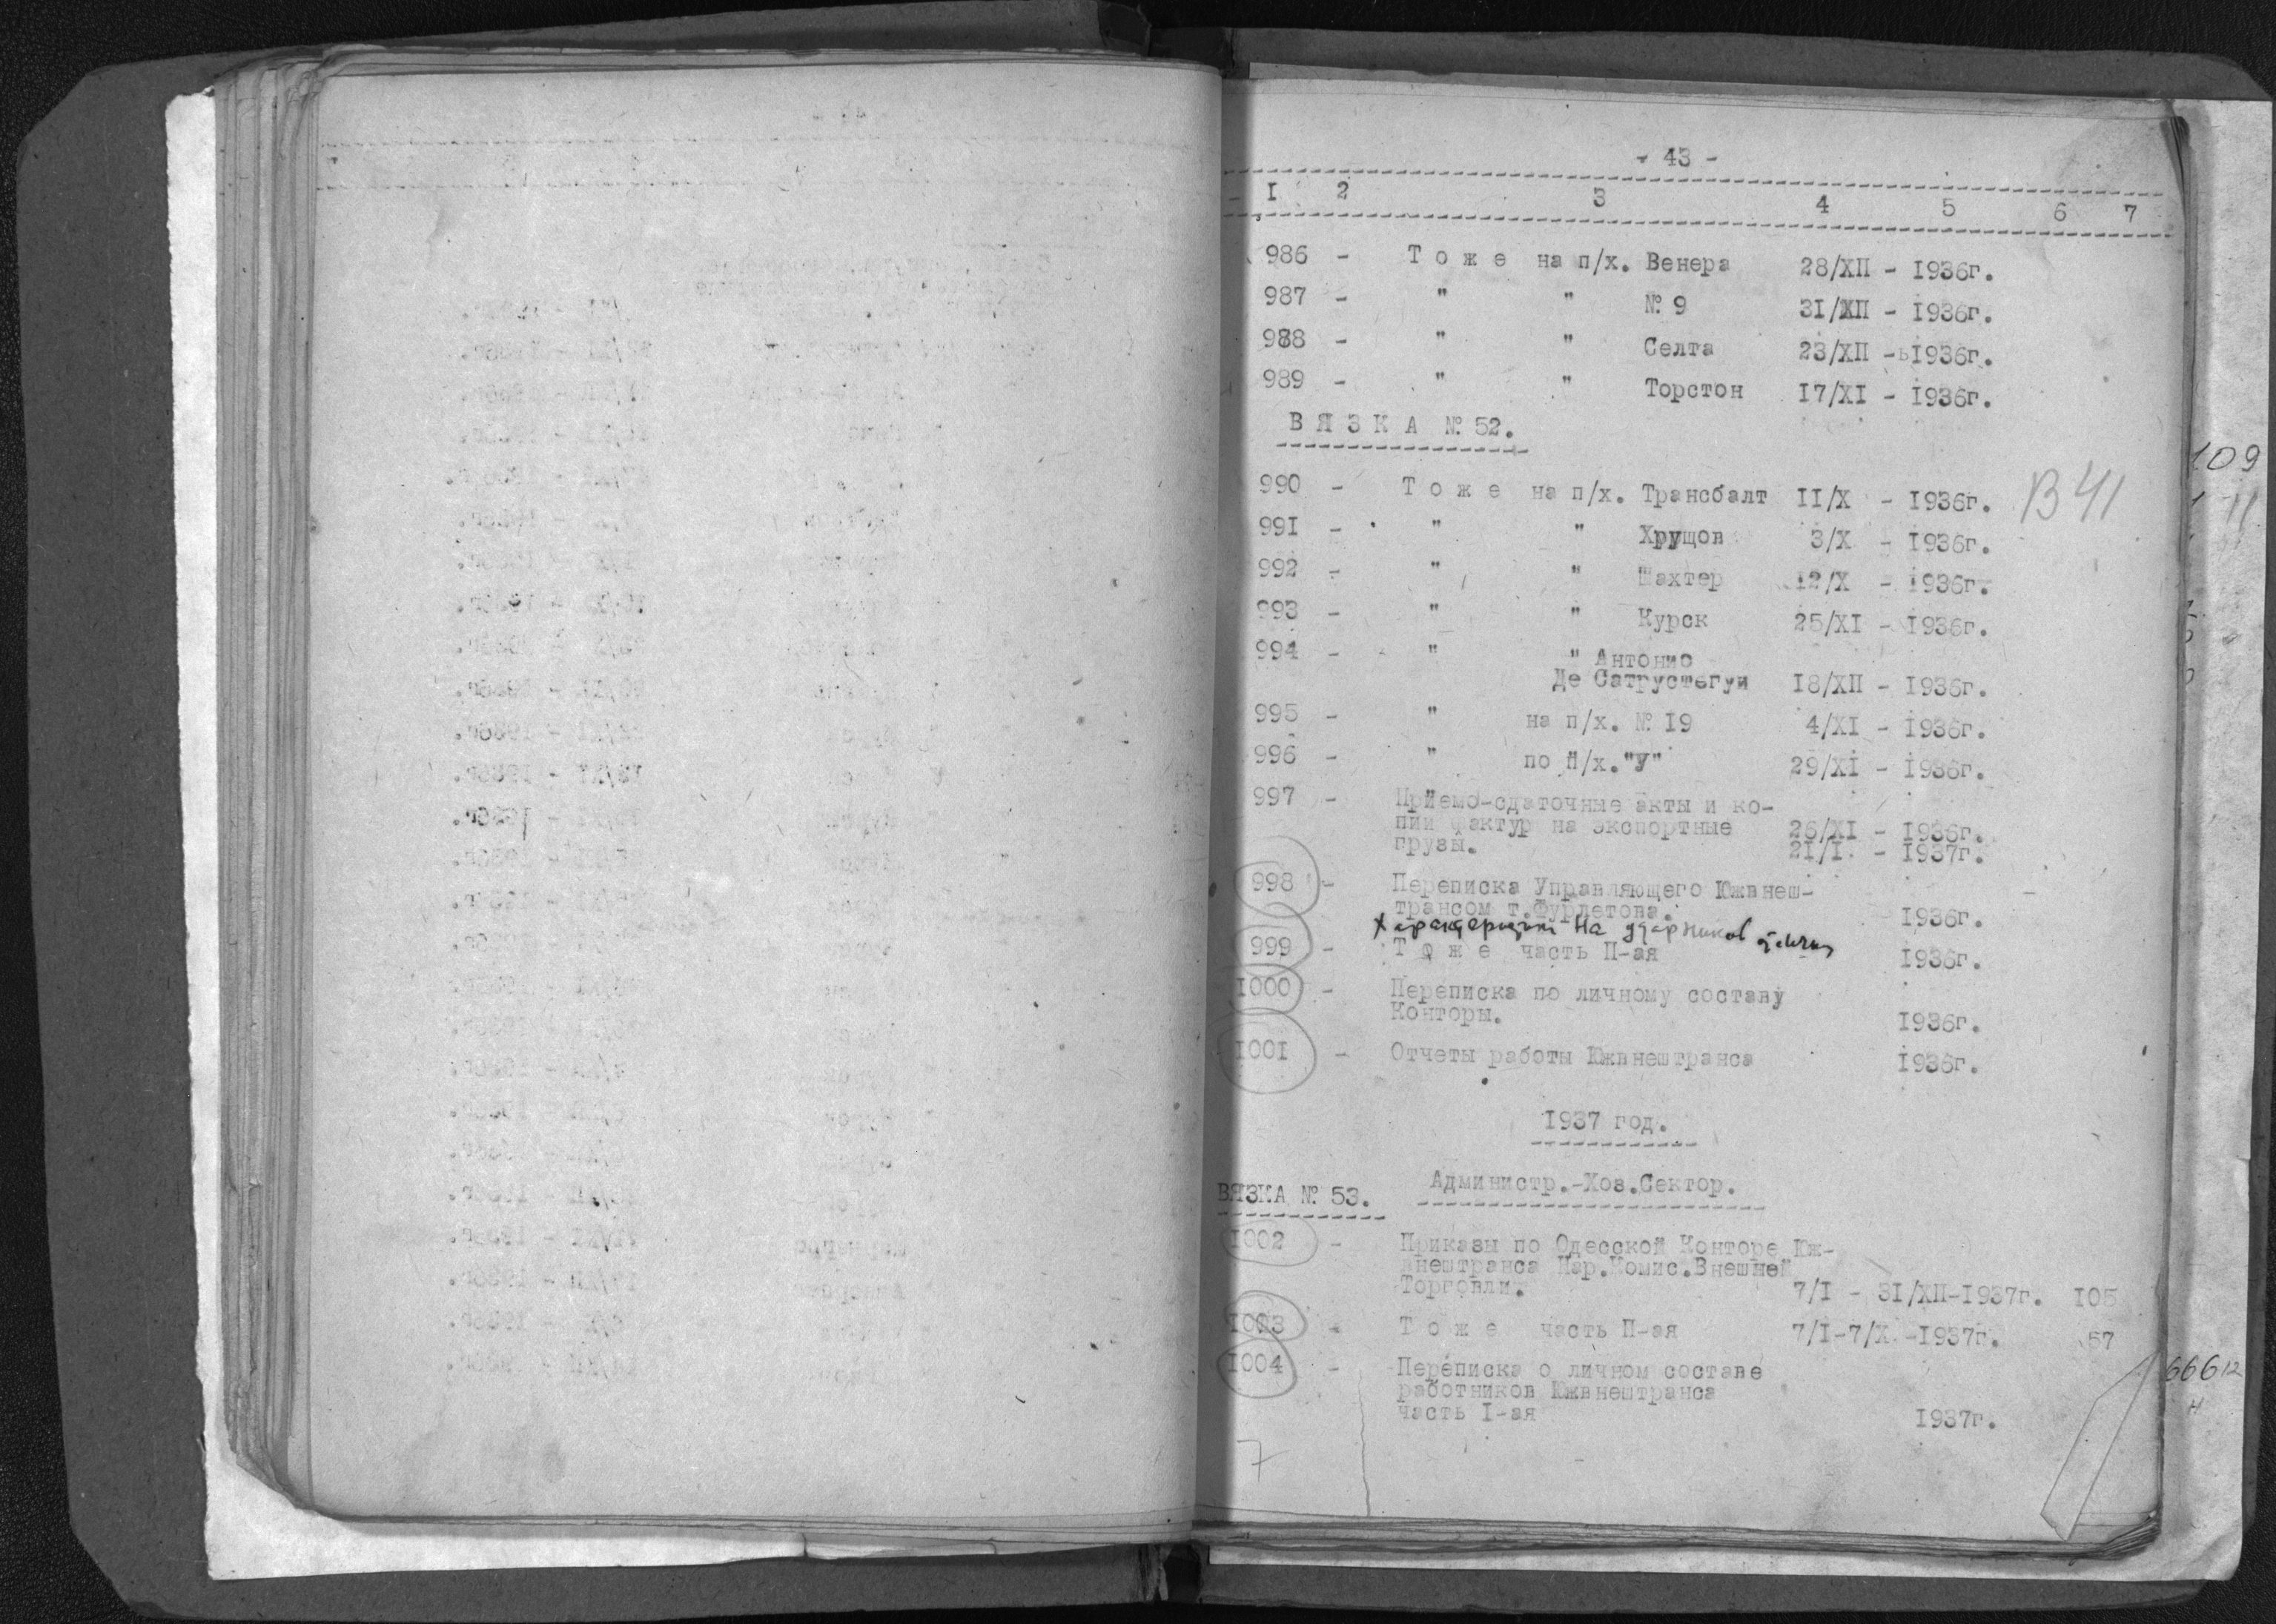 - 43 -
I 2 3 4 5 6 7
986 - Т о ж е на п/х. Венера 28/XII - I936г.
987 - " " № 9 3I/XII - I936г.
988 - " " Селта 23/XII - I936г.
989 - " " Торстон I7/XI - I936г.
В Я З К А № 52.
990 - Т о ж е на п/х. Трансбалт II/X - I936г. В 41
99I - " " Хрущов 3/X - I936г.
992 - " " Шахтер I2/X - I936г.
993 - " " Курск 25/XI - I936г.
994 - " " Антонио
Де Сатрустегуи I8/XII - I936г.
995 - " на п/х. № I9 4/XI - I936г.
996 - " по п/х. "У" 29/XI - I936г.
997 - Приемо-сдаточные акты и ко-
пии фактур на экспортные 26/XI - I936г.
грузы. 2I/I. - I937г.
998 - Переписка Управляющего Южвнеш-
трансом т.Фурлетова. I936г.
на ударников
999 - Т о ж е часть П-ая I936г.
I000 - Переписка по личному составу
Конторы. I936г.
I00I - Отчеты работы Южвнештранса I936г.
I937 год.
Администр.-Хоз.Сектор.
ВЯЗКА № 53.
I002 - Приказы по Одесской Конторе Юж-
внештранса Нар.Комис.Внешней
Торговли. 7/I - 3I/XII-I937г. I05
I003 - Т о ж е часть П-ая 7/I-7/X -I937г. 57
I004 - Переписка о личном составе
работников Южвнештранса
часть I-ая I937г.
7
109
11
66612